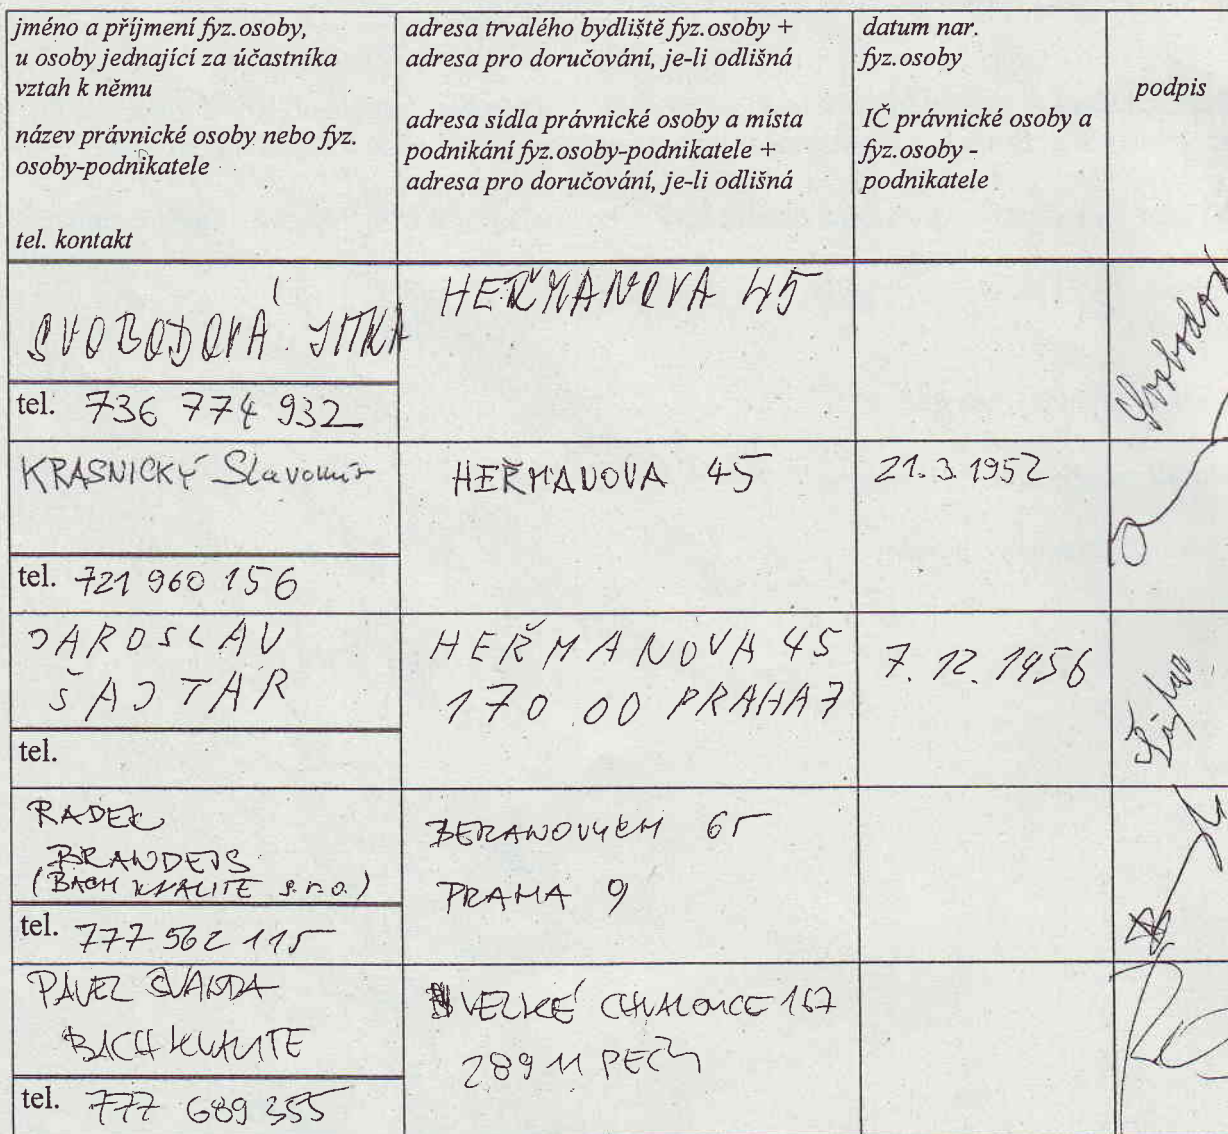 jméno a příjmení fyz.osoby,
u osoby jednající za účastníka
vztah k němu
název právnické osoby nebo fyz.
osoby-podnikatele
tel. kontakt
adresa trvalého bydliště fyz.osoby +
adresa pro doručování, je-li odlišná
adresa sídla právnické osoby a místa
podnikání fyz.osoby-podnikatele +
adresa pro doručování, je-li odlišná
datum nar.
fyz.osoby
IČ právnické osoby a
fyz.osoby -
podnikatele
podpis
SVOBODOVÁ JITKA
tel. 736 774 932
HEŘMANOVA 45
Svobodov
KRASNICKÝ Slavomír
tel. 721 960 156
HEŘMANOVA 45
21.3.1952
JAROSLAV
ŠAJTAR
tel.
HEŘMANOVA 45
170 00 PRAHA 7
7.12.1956
RADEK
BRANDEJS
(BACH KVALITE s.r.o.)
tel. 777 562 115
BERANOVÝCH 65
PRAHA 9
PAVEL ŠVANDA
BACH KVALITE
tel. 777 689 355
VELKÉ CHVALOVICE 167
289 11 PEČKY